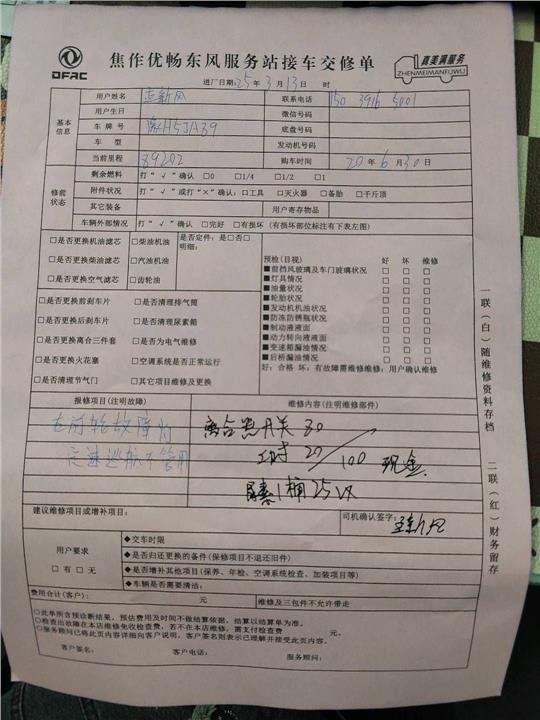 DFAC
焦作优畅东风服务站接车交修单
真美满服务
ZHENMEIMANFUWU
进厂日期:25年3月13日 时
基本信息
用户姓名 联系电话 150 3916 5001
用户生日 微信号码
车牌号 豫H5JA39 底盘号码
车型 发动机号码
当前里程 89202 购车时间 20年6月30日
修前状态
剩余燃料 打“√”确认 □0 □1/4 □1/2 □1
附件状况 打“√”或打“×”确认:□工具 □灭火器 □备胎 □千斤顶
其它装备 用户寄存物品
车辆外部情况 打“√”确认 □完好 □有损坏(有损坏部位标注有下表左图)
□是否更换机油滤芯 □柴油机油 是否定件:是□否□
□是否更换柴油滤芯 □汽油机油 明细:
□是否更换空气滤芯 □齿轮油
□是否更换前刹车片 □是否清理排气筒
□是否更换后刹车片 □是否清理尿素箱
□是否更换离合三件套 □是否为电气维修
□是否更换火花塞 □空调系统是否正常运行
□是否清理节气门 □其它项目维修及更换
预检(目视) 好 坏 维修
■前挡风玻璃及车门玻璃状况 □ □ □
■灯具情况 □ □ □
■油量状况 □ □ □
■轮胎状况 □ □ □
■发动机机油状况 □ □ □
■防冻防锈瓶状况 □ □ □
■制动液液面 □ □ □
■动力转向液液面 □ □ □
■变速箱漏油情况 □ □ □
■后桥漏油情况 □ □ □
好:合格 坏:有故障需维修维修:用户确认维修
报修项目(注明故障) 维修内容(注明维修部件)
右前轮故障灯 离合器开关 80
定速巡航不管用 工时 20 / 100 现金
尿素1桶25
建议维修项目或增补项目: 司机确认签字:
用户要求
□有 □无
◆交车时限
◆是否归还更换的备件(保修项目不退还旧件)
◆是否增补其他项目(保养、年检、空调系统检查、加装项目等)
◆车辆是否需要清洁:
费用合计(客户): 元 维修及三包件不允许带走
○此单所含预诊断结果,预估费用及时间不做结算依据,结算以结算单为准。
○检查出故障在本店维修免收检查费,若不在本店维修,需支付检查费 元。
○服务顾问已将此页内容详细向客户说明,客户签名则表示已理解并接受此页内容。
客户签名: 客户电话: 服务顾问:
一联(白)随维修资料存档
二联(红)财务留存